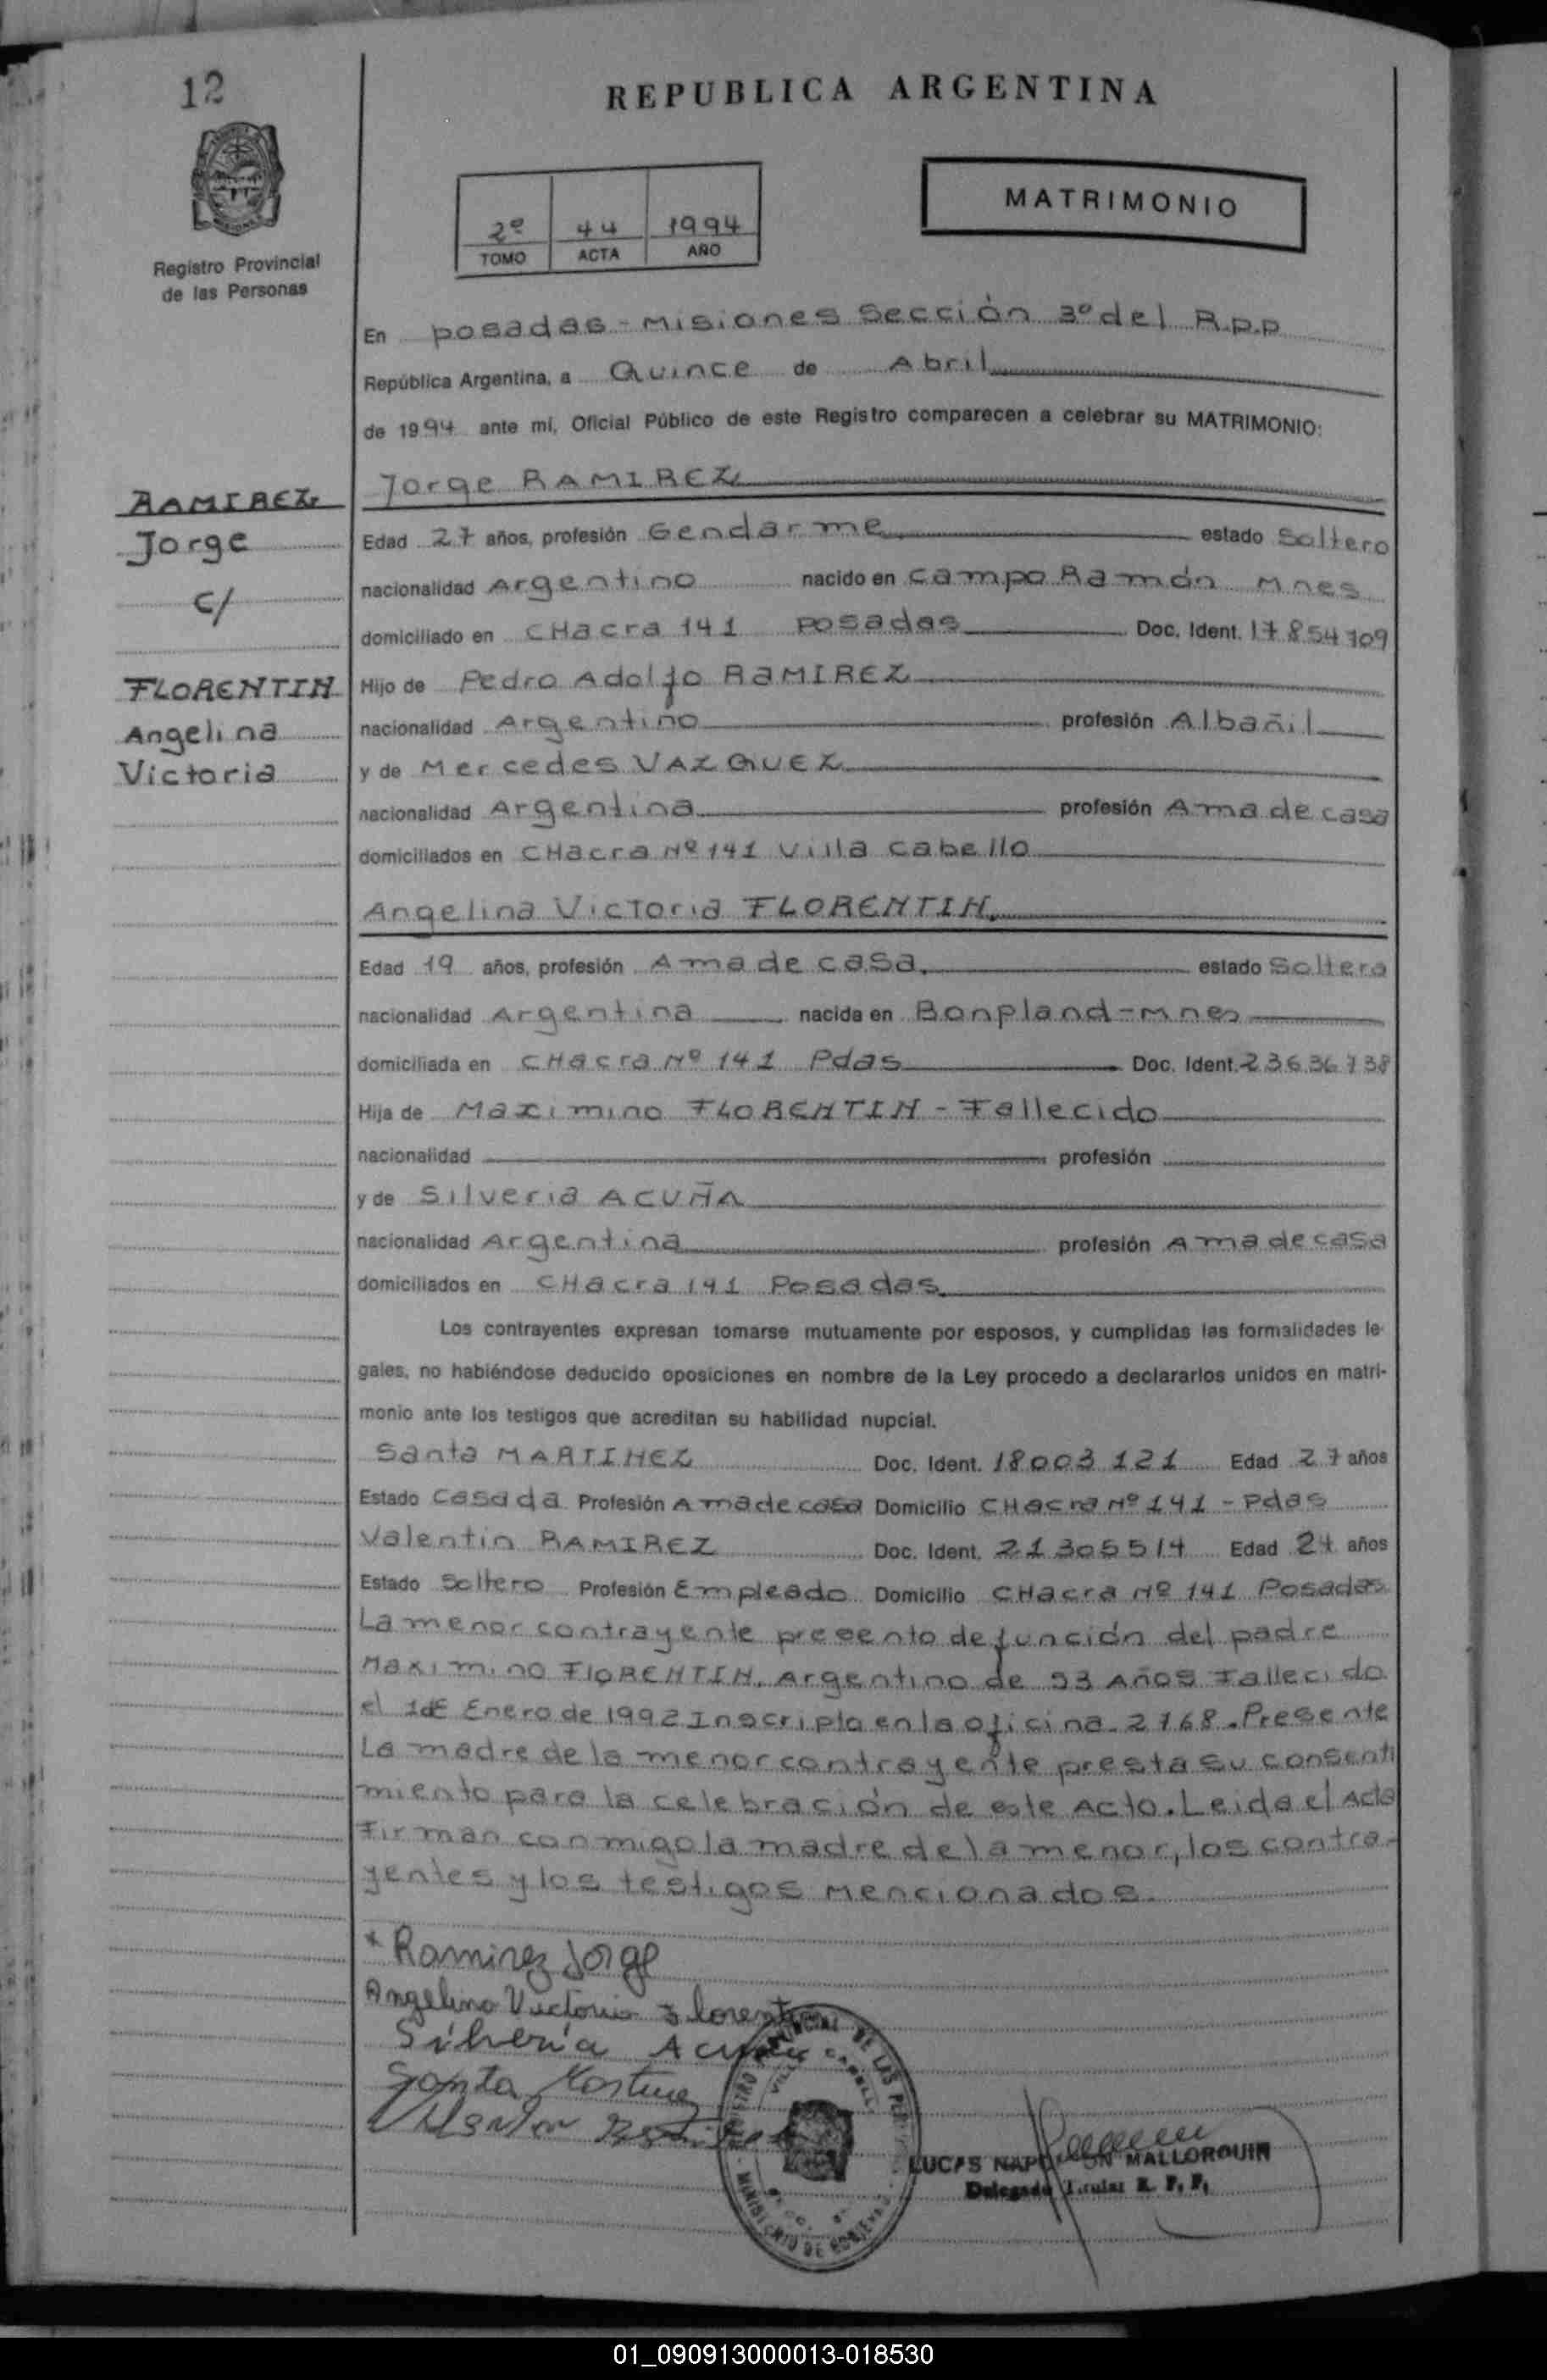 12
REPUBLICA ARGENTINA
Registro Provincial
de las Personas
2º 44 1994
TOMO ACTA AÑO
MATRIMONIO
En posadas - Misiones Sección 3º del R.p.p
República Argentina, a Quince de Abril
de 1994 ante mí, Oficial Público de este Registro comparecen a celebrar su MATRIMONIO:
RAMIREZ
Jorge
c/
FLORENTIN
Angelina
Victoria
Jorge RAMIREZ
Edad 27 años, profesión Gendarme estado Soltero
nacionalidad Argentino nacido en campo Ramón Mnes
domiciliado en CHacra 141 Posadas Doc. Ident. 17854709
Hijo de Pedro Adolfo RAMIREZ
nacionalidad Argentino profesión Albañil
y de Mercedes VAZQUEZ
nacionalidad Argentina profesión Ama de casa
domiciliados en CHacra Nº 141 Villa cabello
Angelina Victoria FLORENTIN
Edad 19 años, profesión Ama de casa. estado Soltera
nacionalidad Argentina nacida en Bonpland - Mnes
domiciliada en CHacra Nº 141 Pdas Doc. Ident. 23636738
Hija de Maximino FLORENTIN - Fallecido
nacionalidad profesión
y de Silveria ACUÑA
nacionalidad Argentina profesión Ama de casa
domiciliados en CHacra 141 Posadas
Los contrayentes expresan tomarse mutuamente por esposos, y cumplidas las formalidades le-
gales, no habiéndose deducido oposiciones en nombre de la Ley procedo a declararlos unidos en matri-
monio ante los testigos que acreditan su habilidad nupcial.
Santa MARTINEZ Doc. Ident. 18003121 Edad 27 años
Estado Casada Profesión Ama de casa Domicilio CHacra Nº 141 - Pdas
Valentin RAMIREZ Doc. Ident. 21305514 Edad 24 años
Estado Soltero Profesión Empleado Domicilio CHacra Nº 141 Posadas
La menor contrayente presento defunción del padre
Maximino FlORENTIN. Argentino de 53 Años Fallecido
el 1 de Enero de 1992 Inscripta en la oficina 2168. Presente
La madre de la menor contrayente presta su consenti
miento para la celebración de este Acto. Leida el Acta
Firman conmigo la madre de la menor, los contra-
yentes y los testigos mencionados.
Ramirez Jorge
Angelina Victoria Florentin
Silveria Acuña
Santa Martinez
LUCAS NAPOLEON MALLORQUIN
Delegado Titular R. P. P.
MINISTERIO DE GOBIERNO
01_090913000013-018530